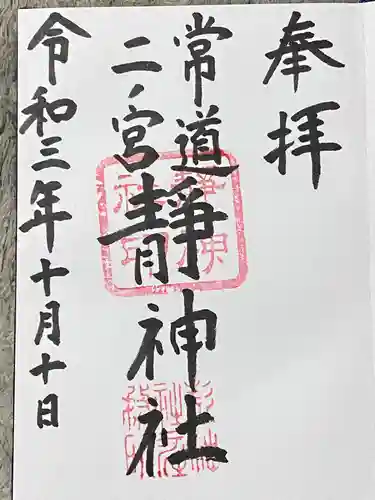 奉拝
常道二ノ宮
靜神社
令和三年十月十日